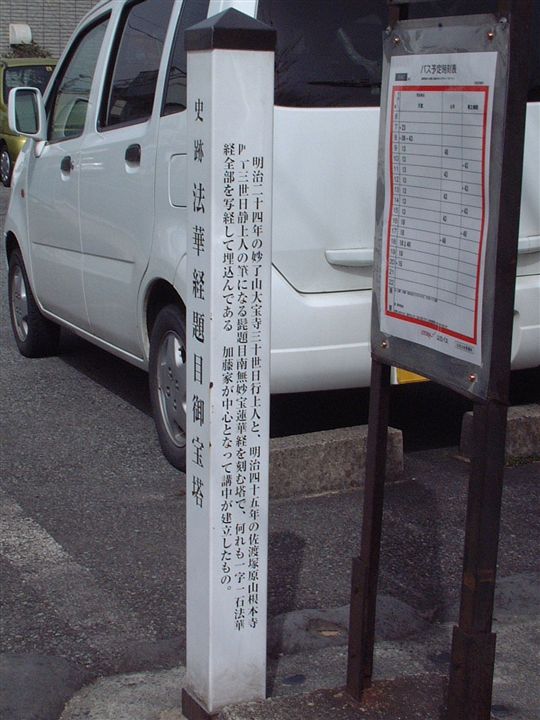 史跡 法華経題目御宝塔
明治二十四年の妙了山大宝寺三十世日行上人と、明治四十五年の佐渡塚原山根本寺
四十三世日静上人の筆になる髭題目南無妙宝蓮華経を刻む塔で、何れも一字一石法華
経全部を写経して埋込んである 加藤家が中心となって講中が建立したもの。
バス予定時刻表